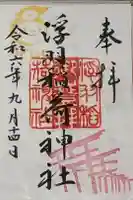 奉拝
浮羽稲荷神社
令和六年九月十四日